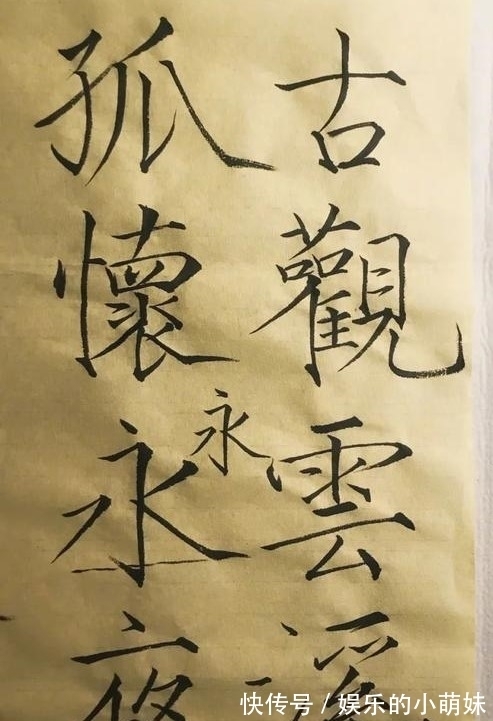 古觀雲
孤懷永夜
永
快传号/娱乐的小萌妹